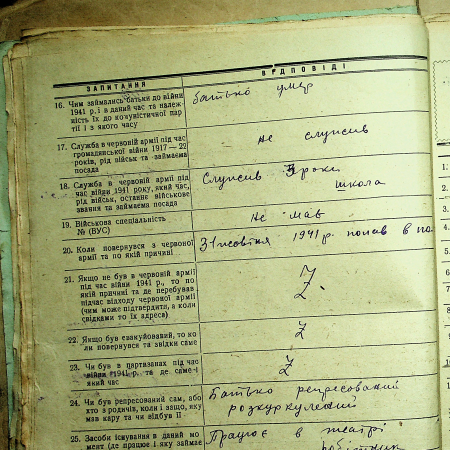 ЗАПИТАННЯ
ВІДПОВІДІ
16. Чим займались батьки до війни
1941 р. і в даний час та належ-
ність їх до комуністичної пар-
тії і з якого часу
батько умер
17. Служба в червоній армії під час
громадянської війни 1917—22
років, рід військ та займаєма
посада
не служив
18. Служба в червоній армії під
час війни 1941 року, який час,
рід військ, останнє військове
звання та займаєма посада
Служив 3 роки
школа
19. Військова спеціальність
№ (ВУС)
не мав
20. Коли повернувся з червоної
армії та по якій причині
31 жовтня 1941 р. попав в по
21. Якщо не був в червоній армії
під час війни 1941 р., то по
якій причині та де перебував
підчас відходу червоної армії
(чим може підтвердити, а коли
свідками то їх адреса)
Z
22. Якщо був евакуйований, то ко-
ли повернувся та звідки саме
Z
23. Чи був в партизанах під час
війни 1941 р. та де саме і
який час
Z
24. Чи був репресований сам, або
хто з родичів, коли і защо, яку
мав кару та чи відбув її
Батько репресований
розкуркулений
25. Засоби існування в даний мо-
мент (де працює і яку займає
Працює в театрі
робітник